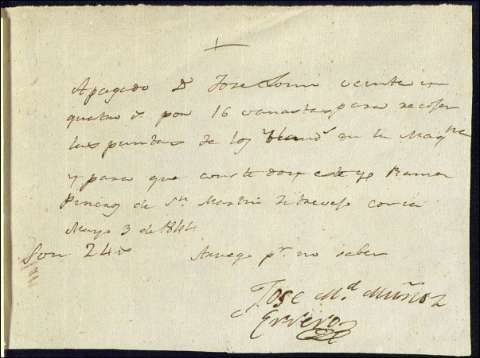 Apagado Dn Jose veinte y
quatro rs por 16 canastas para recoger
las puntas de los en la Maqna
y para que conste doy este yo Ramon
de Sn Martin de trevejo
Mayo 3 de 1844
Son 24 rs Arruego pr no saber
Jose Ma Muñoz
Ervero